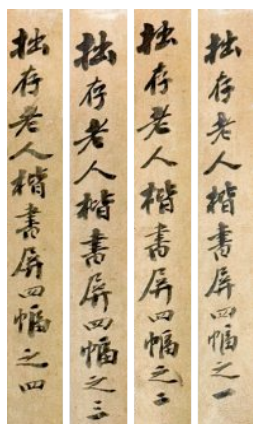 拙存老人楷書屏四幅之一
拙存老人楷書屏四幅之二
拙存老人楷書屏四幅之三
拙存老人楷書屏四幅之四